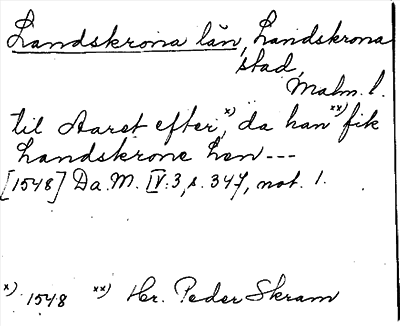 Landskrona län, Landskrona
stad,
Malm. l.
til Aaret efter, x) da han xx) fik
Landskrone Len ---
[1548] Da. M. IV: 3, s. 347, not. 1.
x) 1548 xx) Hr. Peder Skram